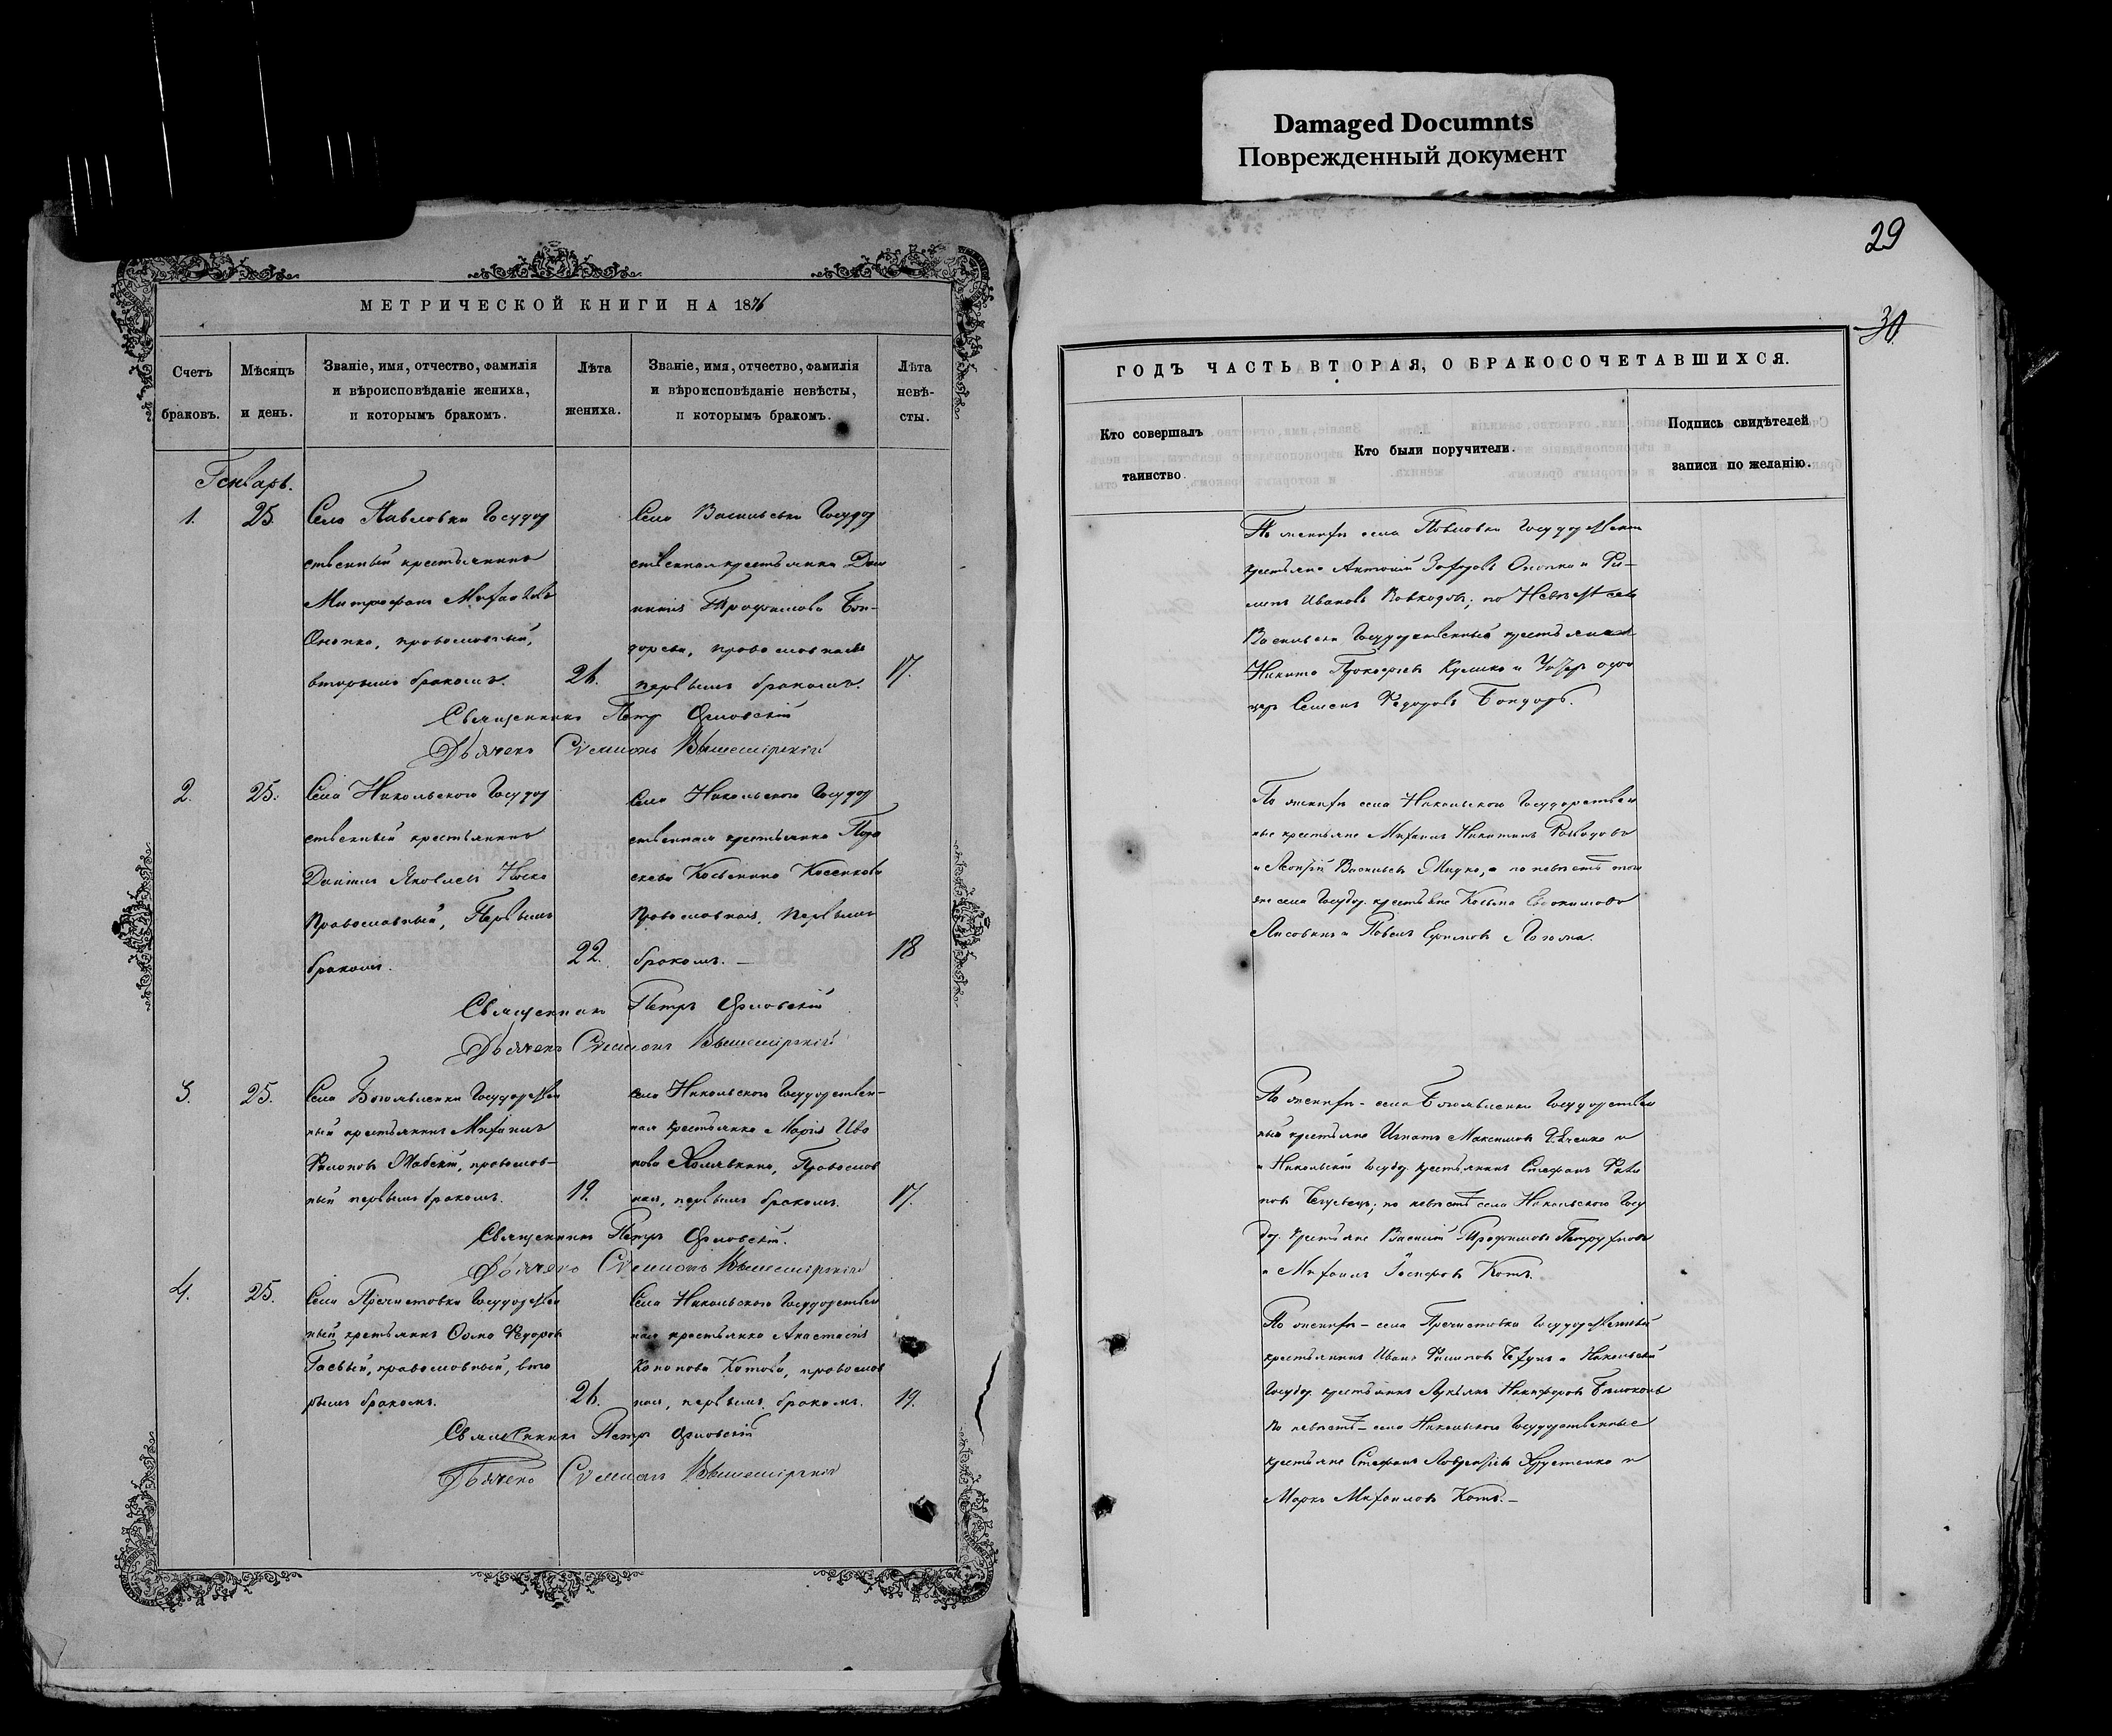 Damaged Documnts
Поврежденный документ
29
30
МЕТРИЧЕСКОЙ КНИГИ НА 1876
Счетъ браковъ.
Мѣсяцъ и день.
Званіе, имя, отчество, фамилія
и вѣроисповѣданіе жениха,
и которымъ бракомъ.
Лѣта жениха.
Званіе, имя, отчество, фамилія
и вѣроисповѣданіе невѣсты,
и которымъ бракомъ.
Лѣта невѣ-
сты.
Генварь.
1.
25.
Села Павловки Государ
ственный крестьянинъ
Митрофанъ Михайловъ
Онопко, православный,
вторымъ бракомъ.
26.
Села Васильевки Государ
ственная крестьянка
Трофимова Бон-
дарева, православная
первымъ бракомъ.
17.
Священникъ Петръ Орловскій
Дьячекъ Сѵмеонъ Вышемірскій
2.
25.
Села Никольского Государ
ственный крестьянинъ
Даніилъ Яковлевъ Носко
Православный, Первымъ
бракомъ.
22.
Села Никольского Государ
ственная крестьянка Пара
скева Косенкова
Православная, первымъ
бракомъ. —
18
Священникъ Петръ Орловскій
Дьячекъ Сѵмеонъ Вышемірскій
3.
25.
Села Богоявленки Государствен
ный крестьянинъ Михаилъ
православ-
ный первымъ бракомъ.
19.
села Никольского Государствен-
ная крестьянка Марія Ива
нова Православ
ная, первымъ бракомъ.
17.
Священникъ Петръ Орловскій.
Дьячекъ Сѵмеонъ Вышемірскій
4.
25.
Села Пречистовки Государствен
ный крестьянинъ Ѳома Федоровъ
Гаевый, православный, вто
рымъ бракомъ.
26.
Села Никольского Государствен
ная крестьянка Анастасія
Кононова Котова, православ
ная, первымъ бракомъ.
19.
Священникъ Петръ Орловскій
Дьячекъ Сѵмеонъ Вышемірскій
ГОДЪ ЧАСТЬ ВТОРАЯ, О БРАКОСОЧЕТАВШИХСЯ.
Кто совершалъ таинство.
Кто были поручители.
Подпись свидѣтелей записи по желанію.
По женихѣ села Павловки Государственн
крестьяне Антоній Захаровъ Онопко и Фи-
липъ Ивановъ по Невѣстѣ села
Васильевки Государственный крестьянинъ
Никита Прокофіевъ Кулишко и
Семенъ Федоровъ Бондарь.
По женихѣ села Никольского Государствен
ные крестьяне Михаилъ Никитинъ
и Васильевъ а по невѣстѣ того
же села Государ. крестьяне Козьма Евдокимовъ
Лисовинъ и Павелъ Ефимовъ
По женихѣ — села Богоявленки Государствен
ный крестьяне Игнатъ Максимовъ и
и Никольскій Государ. крестьянинъ Стефанъ
по невѣстѣ села Никольского Госу
дар. крестьяне Василій Трофимовъ
и Михаилъ Котъ.
По женихѣ — села Пречистовки Государственный
крестьянинъ Иванъ Филиповъ и Никольскій
Государ. крестьянинъ Лукьянъ Никифоровъ Бѣлоконь
По невѣстѣ — села Никольского Государственные
крестьяне Стефанъ Хрустенко и
Марко Михаиловъ Котъ. —